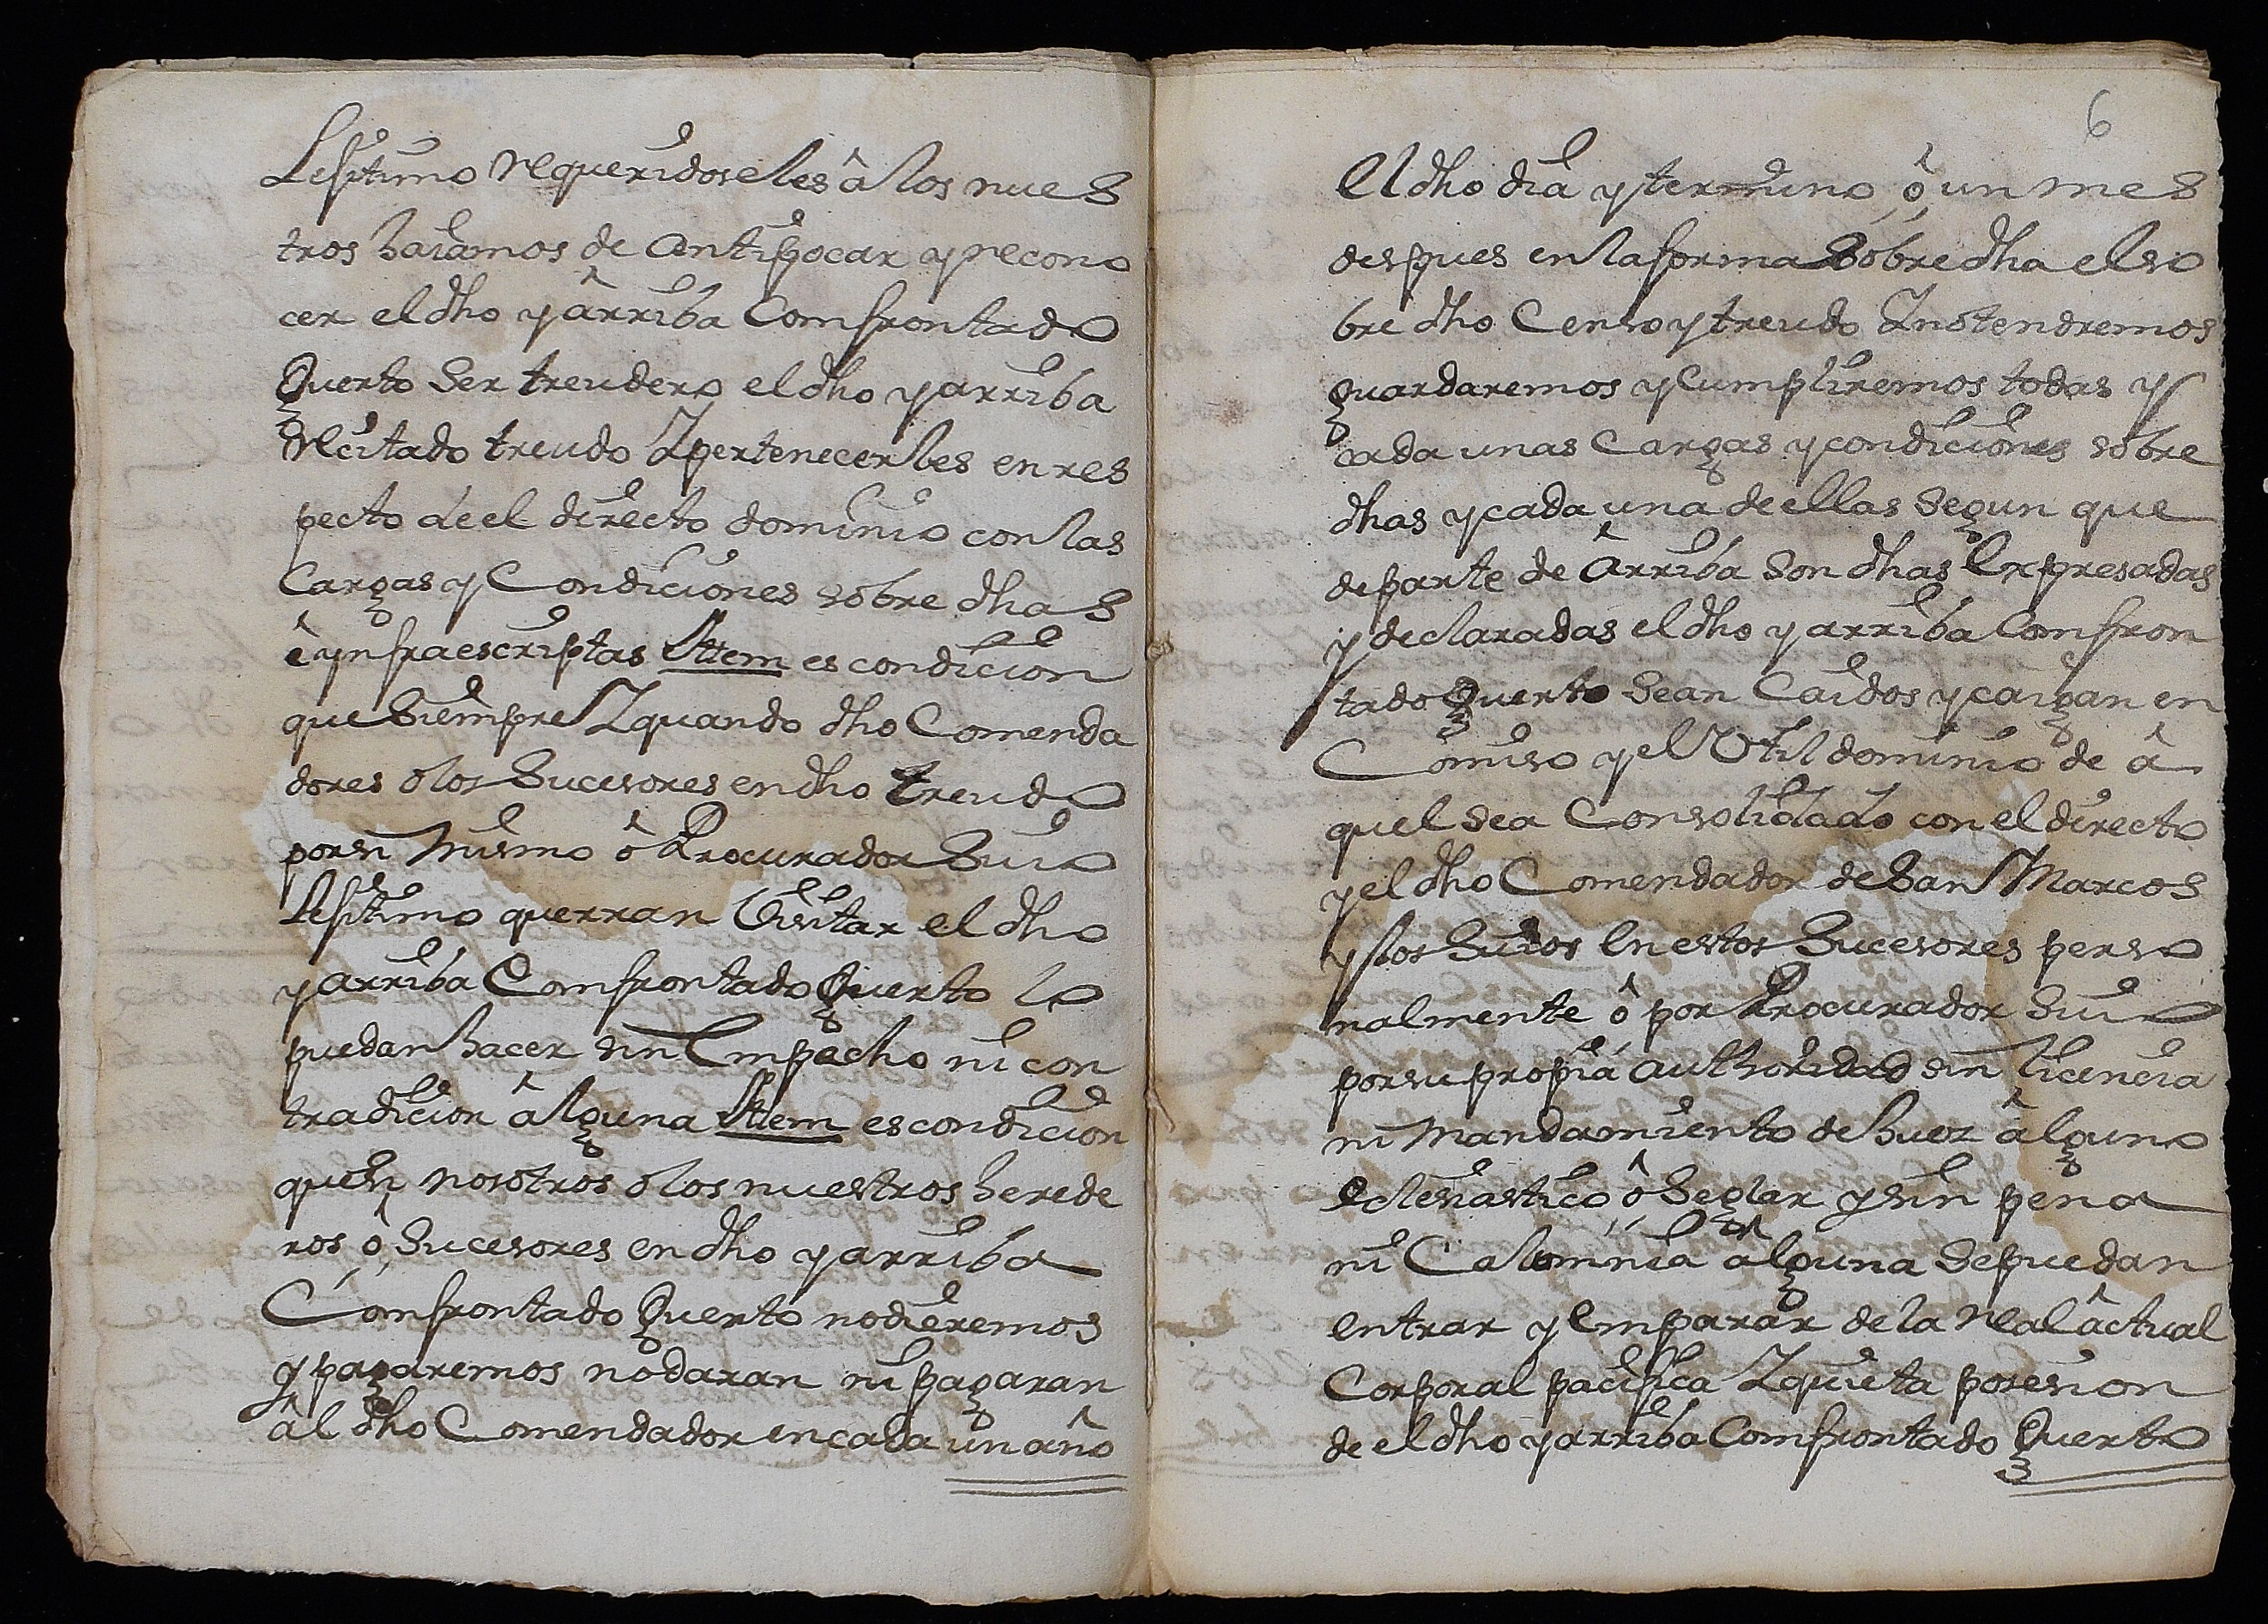 Lesitimo requeridoseles â los nues
tros haiamos de antipocar y recono
cer el dho y ârriba Comfrontado
Guerto Ser treudero el dho y arriba
recitado treudo Y pertenecerles en res
pecto de el directo dominio con las
Cargas y Condiciones sobre dhas
ê ynfraescriptas Ittem es condicion
que Siempre Y quando dho Comenda
dores o los Sucesores en dho treudo
por si Mismo ô Procurador Suio
Lesitimo querran Visitar el dho
y arriba Comfrontado Guerto lo
puedan hacer sin Empacho ni con
tradicion âlguna Ittem es condicion
que si nosotros o los nuestros herede
ros ô Sucesores en dho y arriba
Comfrontado Guerto no dieremos
y pagaremos no daran ni pagaran
âl dho Comendador en cada un año
6
El dho dia y termino ô un mes
despues en la forma Sobre dha el so
bre dho Censo y treudo Y no tendremos
guardaremos y Cumpliremos todas y
cada unas Cargas y condiciones sobre
dhas y cada una de ellas Segun que
de parte de ârriba Son dhas Expresadas
y declaradas el dho y arriba Comfron
tado Guerto Sean Caidos y caigan en
Comiso y el Vtil dominio de â
quel sea Consolidado con el directo
y el dho Comendador de San Marcos
y los Suios En estos Sucesores perso
nalmente ô por Procurador Suio
por su propia authoridad sin licencia
ni Mandamiento de Juez âlguno
eclesiastico ô Seglar y sin pena
ni Calomnia âlguna Se puedan
entrar y Emparar de la real âctual
Corporal pacifica Y quieta posesion
de el dho y arriba Comfrontado Guerto